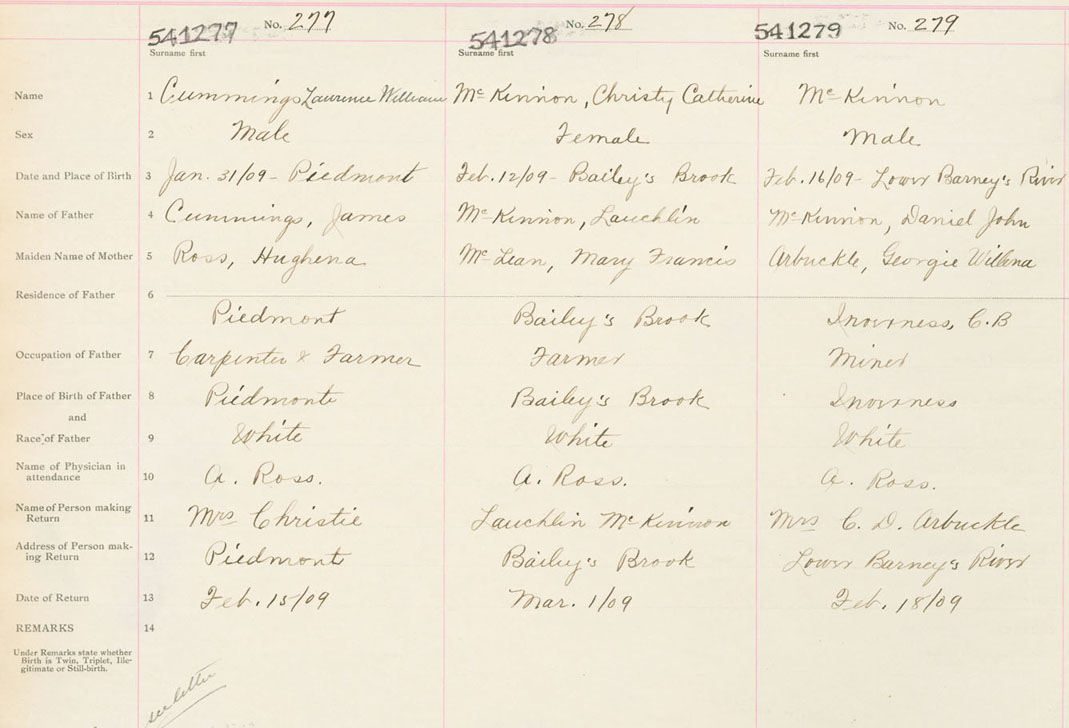 No. 277 No. 278 No. 279
541277 541278 541279
Surname first Surname first Surname first
Name 1 Cummings Laurence William McKinnon, Christy Catherine McKinnon
Sex 2 Male Female Male
Date and Place of Birth 3 Jan. 31/09 - Piedmont Feb. 12/09 - Bailey's Brook Feb. 16/09 - Lower Barney's River
Name of Father 4 Cummings, James McKinnon, Lauchlin McKinnon, Daniel John
Maiden Name of Mother 5 Ross, Hughena McLean, Mary Francis Arbuckle, Georgie Willena
Residence of Father 6
Piedmont Bailey's Brook Inverness, C.B
Occupation of Father 7 Carpenter & Farmer Farmer Miner
Place of Birth of Father 8 Piedmont Bailey's Brook Inverness
and
Race of Father 9 White White White
Name of Physician in
attendance 10 A. Ross. A. Ross. A. Ross.
Name of Person making
Return 11 Mrs Christie Lauchlin McKinnon Mrs C. D. Arbuckle
Address of Person mak-
ing Return 12 Piedmont Bailey's Brook Lower Barney's River
Date of Return 13 Feb. 15/09 Mar. 1/09 Feb. 18/09
REMARKS 14
Under Remarks state whether
Birth is Twin, Triplet, Ille-
gitimate or Still-birth.
see letter